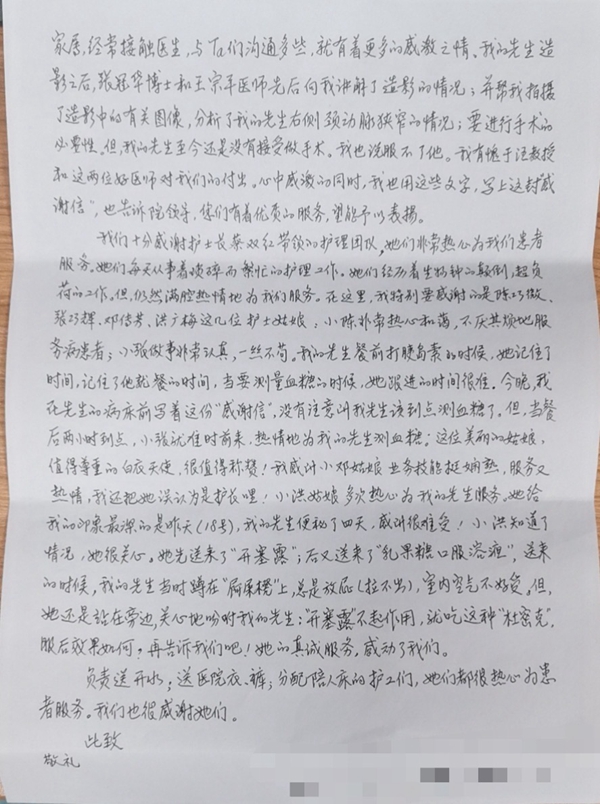 家属,经常接触医生,与Ta们沟通多些,就有着更多的感激之情。我的先生造
影之后,张冠华博士和王宗军医师先后向我讲解了造影的情况;并帮我拍摄
了造影中的有关图像,分析了我的先生右侧颈动脉狭窄的情况;要进行手术的
必要性。但,我的先生至今还是没有接受做手术。我也说服不了他。我有愧于汪教授
和这两位好医师对我们的付出。心中感激的同时,我也用这些文字,写上这封"感
谢信",也告诉院领导,你们有着优质的服务,望能予以表扬。
我们十分感谢护士长 双红带领的护理团队,她们非常热心为我们患者
服务。她们每天从事着琐碎而繁忙的护理工作。她们经历着生物钟的颠倒,超负
荷的工作。但,仍然满腔热情地为我们服务。在这里,我特别要感谢的是陈巧微、
张巧辉、邓倩芳、洪广梅这几位护士姑娘:小陈非常热心和蔼,不厌其烦地服
务病患者;小张做事非常认真,一丝不苟。我的先生餐前打胰岛素的时候,她记住了
时间,记住了他就餐的时间,当要测量血糖的时候,她跟进的时间很准。今晚,我
在先生的病床前写着这份"感谢信",没有注意叫我先生该到点测血糖了。但,当餐
后两小时到点,小张就准时前来,热情地为我的先生测血糖;这位美丽的姑娘,
值得尊重的白衣天使,很值得称赞!我感叫小邓姑娘业务技能挺娴熟,服务又
热情,我还把她误认为是护长哩!小洪姑娘多次热心为我的先生服务。她给
我的印象最深的是昨天(18号),我的先生便秘了四天,感叫很难受!小洪知道了
情况,她很关心。她先送来了"开塞露";后又送来了"乳果糖口服溶液",送来
的时候,我的先生当时蹲在"屙屎凳"上,总是放屁(拉不出),室内空气不好受。但,
她还是站在旁边,关心地吩咐我的先生:"开塞露"不起作用,就吃这种"杜密克",
服后效果如何?再告诉我们吧!她的真诚服务,感动了我们。
负责送开水;送医院衣、裤;分配陪人床的护工们,她们都很热心为患
者服务。我们也很感谢她们。
此致
敬礼